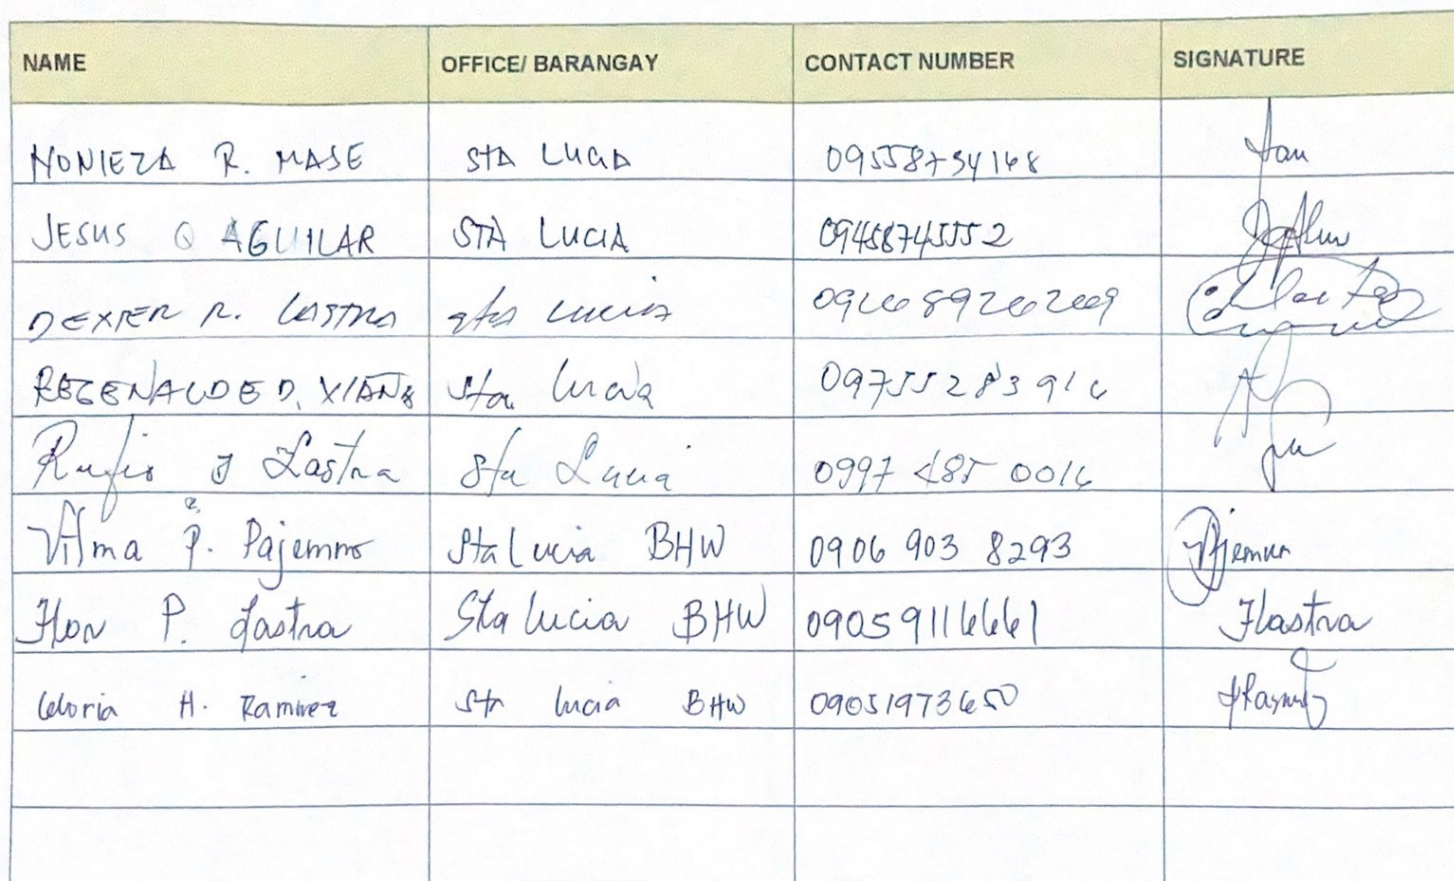 NAME OFFICE/ BARANGAY CONTACT NUMBER SIGNATURE
NONIEZA R. MASE STA LUCIA 09558734148
JESUS Q AGUILAR STA LUCIA 09458745552
DEXTER R. LASTRA sta lucia 09268926269
REGENALDE D. sta. lucia 09755283916
Rufis J Lastra Sta Lucia 0997 485 0016
Vilma P. Pajemno Sta Lucia BHW 0906 903 8293
Flor P. Lastra Sta Lucia BHW 09059116661 Flastra
Gloria H. Ramirez Sta lucia BHW 09051973650